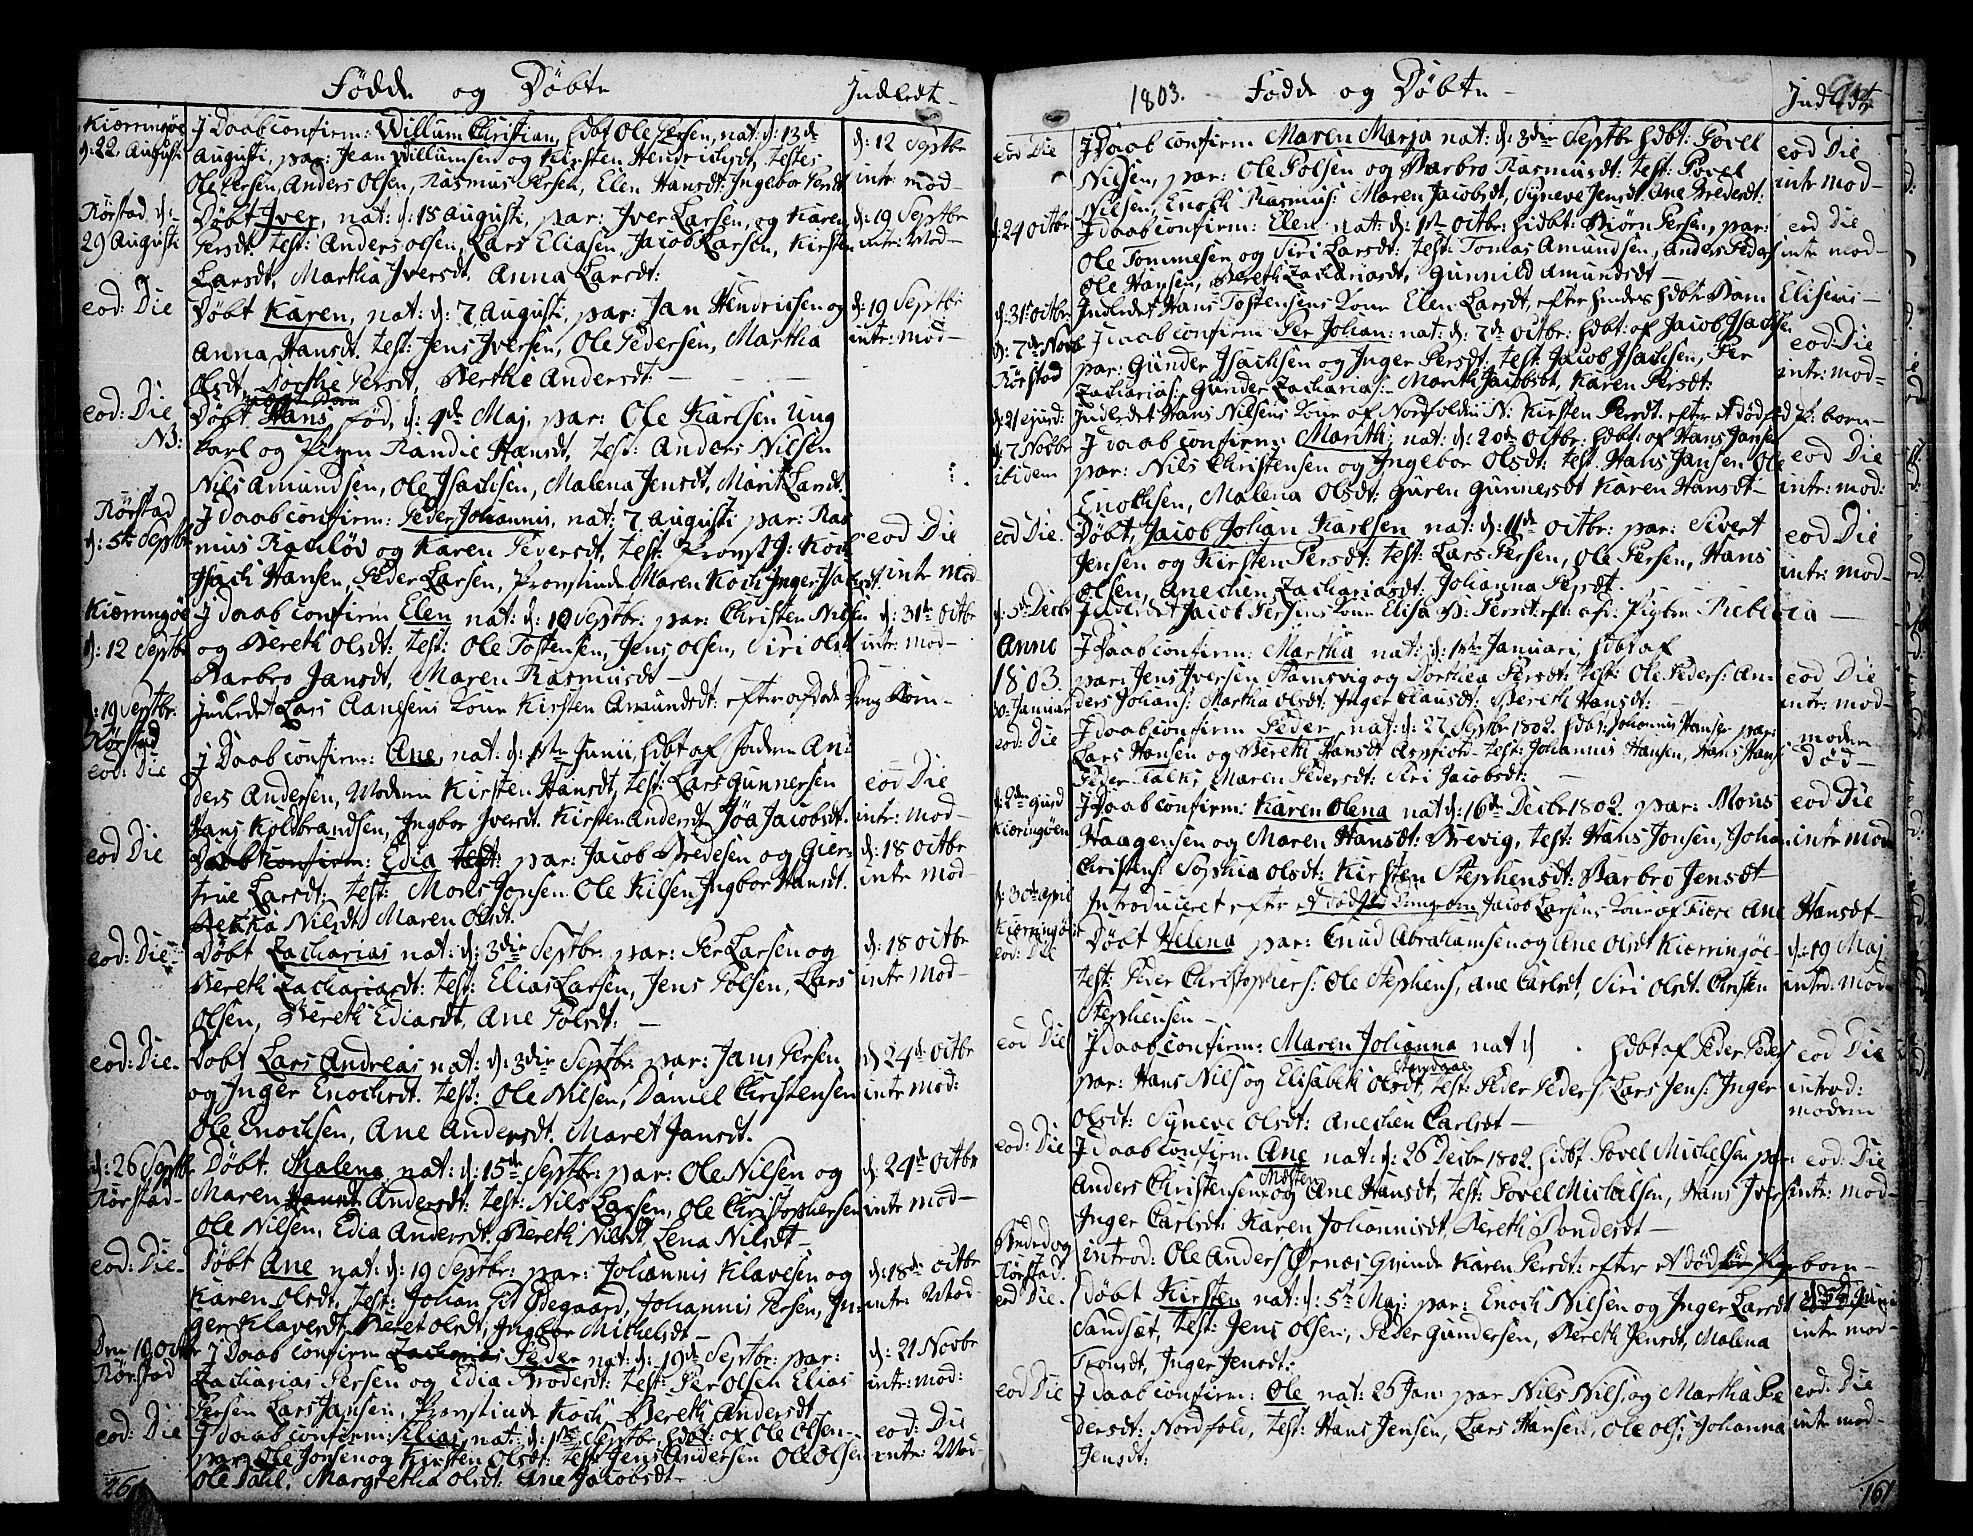 Fødde og Døbte
Indledt
Kierringøe J Daab confirm: Willum Christian, hdbt Ole Persen, nat: d: 13de d: 12 Septbr
d: 22 Augusti Augusti, par: Jean Willumsen og Kirsten Hendrichsdt, testes intr: mod-
Ole Persen, Anders Olsen, Rasmus Persen, Elen Hansdt: Ingebor Persdt
Rørstad d: Døbt Iver, nat: d: 18 Augusti, par: Iver Larsen, og Karen d: 19 Septbr
29 Augusti Persdt. test: Anders olsen, Lars Eliasen, Jacob Larsen, Kirsten intr: Mod-
Larsdt, Martha Iversdt. Anna Larsdt:
eod: Die Døbt Karen, nat: d: 7 Augusti, par: Jan Hendricsen og d: 19 Septbr
Anna Hansdt. test: Jens Iversen, Ole Pedersen, Martha intr: mod-
Olsdt, Dorthe Persdt, Berthe Andersdt: -
eod: Die Døbt Hans fød, d: 4de Maj, par: Ole Karlsen Ung
NB: karl og Pigen Randie Hansdt, test: Anders Nilsen
Nils Amundsen, Ole Isachsen, Malena Jensdt, Marit Larsdt.
Rørstad J daab confirm: Peder Johannis, nat: 7 Augusti par: Ras
d: 5te Septbr mus Rachløv og Karen Siversdt, test: Provst J: Koch eod Die
Isach Hansen, Peder Larsen, Provstinde Maren Koch, Inger Isachsdt. intr Mod-
Kierringøe J daab confirm Elen nat: d: 10 Septbr: par: Christen Nilsen d: 31te Octbr
d: 12 Septbr og Bereth Olsdt: test: Ole Tostensen, Jens Olsen, Siri olsdt intr: mod-
Barbro Jansdt, Maren Rasmusdt-
d: 19 Septbr. Indledet Lars Aanesens Kone Kirsten Amundsdt: efter
Rørstad
eod: Die J Daab confirm: Ane, nat: d: 1ste Junii hdbt af faderen An:
ders Andersen, Moderen Kirsten Hansdt, test: Lars Gunnersen eod Die
Hans Koldbrandsen, Ingbor Iversdt. Kirsten Andersdt Jøa Jacobsdt. intr: Mod-
eod Die Daab Confirm: Edia par: Jacob Bredesen og Gier: d: 18 Octbr
true Larsdt: test: Mons Jonsen Ole Kilsen, Ingbor Hansdt. intr mod-
Bekka Nilsdt Maren Olsdt.
eod: Die Døbt Zacharias nat: d: 3die Septbr: par: Per Larsen og d: 18 Octbr
Bereth Zachariasdt: test: Elias Larsen, Jens Polsen, Lars intr mod-
Olsen, Bereth Ediasdt, Ane Polsdt: -
eod: Die. Døbt Lars Andreas nat: d: 3die Septbr par: Jans Persen d 24de Octbr
og Inger Enochsdt. test: Ole Nilsen, Daniel Christensen intr mod:
Ole Enochsen, Ane Andersdt. Maret Jansdt.
d: 26 Septbr Døbt. Malena nat: d: 15de Septbr: par: Ole Nilsen og d: 24de Octbr
Rørstad- Maren Andersdt: test: Nils Larsen, Ole Christophersen intr mod-
Ole Nilsen, Edia Andersdt. Bereth Nilsdt, Lena Nilsdt-
eod: Die- Døbt Ane nat: d: 19 Septbr: par: Johannis Klavesen og d: 18de Octbr
Karen Olsdt, test: Johan Ødegaard, Johannis Persen, In: intr: Mod-
ger Klavesdt, Beret Olsdt, Ingbor Michelsdt-
Den 19 Octbr J Daab confirm Zacharias Peder nat: d: 19d Septbr: par: d: 21 Novbr
Rørstad Zacharias Persen og Edia Brodersdt: test: Per Olsen Elias intr: mod:
Persen Lars Jansen, Provstinde Koch Bereth Andersdt
eod: Die J daab confirm: Elias nat: d: 1ste Septbr, hdbt: af Ole Olsen- eod: Die
par: Ole Jonsen og Kirsten Olsdt: test: Jens Andersen Ole Olsen intr: Mod-
Ole Pahl. Margretha Olsdt: Ane Jacobsdt-
261
1803. Fødde og Døbte -
Indledte
eod Die J daab confirm Maren Marja nat: d: 3die Septbr hdbt: Povel eod Die
Nilsen, par: Ole Polsen og Barbro Rasmusdt: test: Povel intr: mod-
Nilsen, Enoch Rasmus: Maren Jacobsdt, Syneve Jensdt. Ane Bredesdt:
d: 24 Octbr J daab confirm: Elen nat: d: 1st Octbr: hidbt: Biørn Persen, par: eod Die
Ole Tommesen og Siri Larsdt: test: Tomas Amundsen, Anders Peders intr mod-
Ole Hansen, Bereth Zachariasdt, Gunnild Amundsdt-
d: 31te Octbr Indledet Hans Tostensens Kone Elen Larsdt, efter hendes hdbte Barn Eliseus-
d: 7de Novb J daab confirm Per Johan: nat: d: 7de Octbr: hdbt: af Jacob Isachsen eod: Die
Rørstad par: Gunder Isachsen og Inger Persdt, test: Jacob Isachsen, Per intr: mod-
Zacharias: Gunder Zacharia: Marith Jacobsdt, Karen Persdt:
d: 21 ejusd: Indledet Hans Nilsens Kone af Nordfolden N: Kirsten Persdt. efter et dødfød P: born-
d: 7 Novbr J daab confirm: Marith: nat: d: 20de Octbr: hdbt: af Hans Jansen eod Die
itidem par: Nils Christensen og Ingebor Olsdt: test. Hans Jansen Ole intr: mod:
Enochsen, Malena Olsdt: Guren Gunnersdt Karen Hansdt-
eod Die. Døbt, Jacob Johan Karlsen nat: d: 11de Octbr: par: Sivert eod Die
Jensen og Kirsten Persdt: test: Lars Persen, Ole Persen, Hans intr: mod-
Olsen, Anechen Zachariasdt: Johanna Persdt.
d: 5te Decbr Indledet Jacob Persens Kone Elisa P: Persdt: eft: afd: Pigbrn Rebecca-
Anno J Daab confirm: Martha nat: d: 1ste Januari, hdbt af
1803. par: Jens Iversen Stamsvig og Dorthea Persdt: test: Ole Peders: An- eod Die
30 Januar ders Johans: Martha Olsdt: Inger Clausdt: Bereth Hansdt: intr: mod-
eod: Die J daab confirm Peder nat: d: 27 Septbr 1802. hdbt: Johannis Hansen par: modern
Lars Hansen og Bereth Hansdt test: Johannis Hansen, Hans Hans død-
Peder Falk: Maren Pedersdt: Siri Jacobsdt:
Kierringøen J Daab confirm: Karen Olena nat d: 16de Decbr 1802, par: Mons eod Die
Haagensen og Maren Hansdt: Brevig, test: Hans Jonsen, Johan intr mod
Christens: Sophia Olsdt: Kirsten Stephensdt: Barbro Jensdt-
d: 30te april Introduceret efter et dødfød Drengebrn Jacob Larsens Kone af Fiære Ane Hansdt-
Kierringøe Døbt Helena par: Cnud Abrahamsen og Ane Olsdt Kierringøe- d: 19 Maj
eod: Die test: Peder Christophers: Ole Stephens, Ane Carlsdt, Siri Olsdt. Christen intrd: mod-
Stephensen-
eod Die J daab confirm: Maren Johanna nat d hdbt af Peder Peders eod Die
par: Hans Nils og Elisabeth Olsdt, test: Peder Peders, Lars Jens: Inger introd:
Olsdt: Syneve Olsdt: Anechen Carlsdt- modern
eod: Die J daab confirm. Ane nat: d: 26 Decbr 1802. hidbt Povel Michelsen par: eod: Die
Anders Christensen og Ane Hansdt, test: Povel Michelsen, Hans Ivers intr: mod-
Inger Carlsdt: Karen Johannisdt, Bereth Pondersdt-
Rørstad. introd: Ole Anders Ørnæs Qvinde Karen Persdt: efter et dødfød Pige born-
eod Die. døbt Kirsten nat: d: 5te Maj: par: Enoch Nilsen og Inger Larsdt
Sandsæt, test: Jens Olsen, Peder Gundersen, Bereth Jensdt, Malena intr mod-
Tronsdt, Inger Jensdt:
eod Die J daab confirm: Ole nat: 25 Jan: par Nils Nils, og Martha Pe eod: Die
dersdt: Nordfold, test: Hans Jensen, Lars Hansen, Ole Ols: Johanna intr mod-
Jensdt:
161